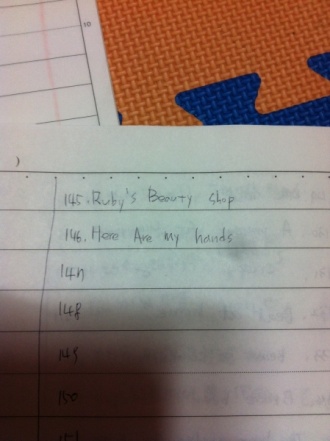 10
)
145. Ruby's Beauty shop
146. Here Are my hands
147
148
149
150
151